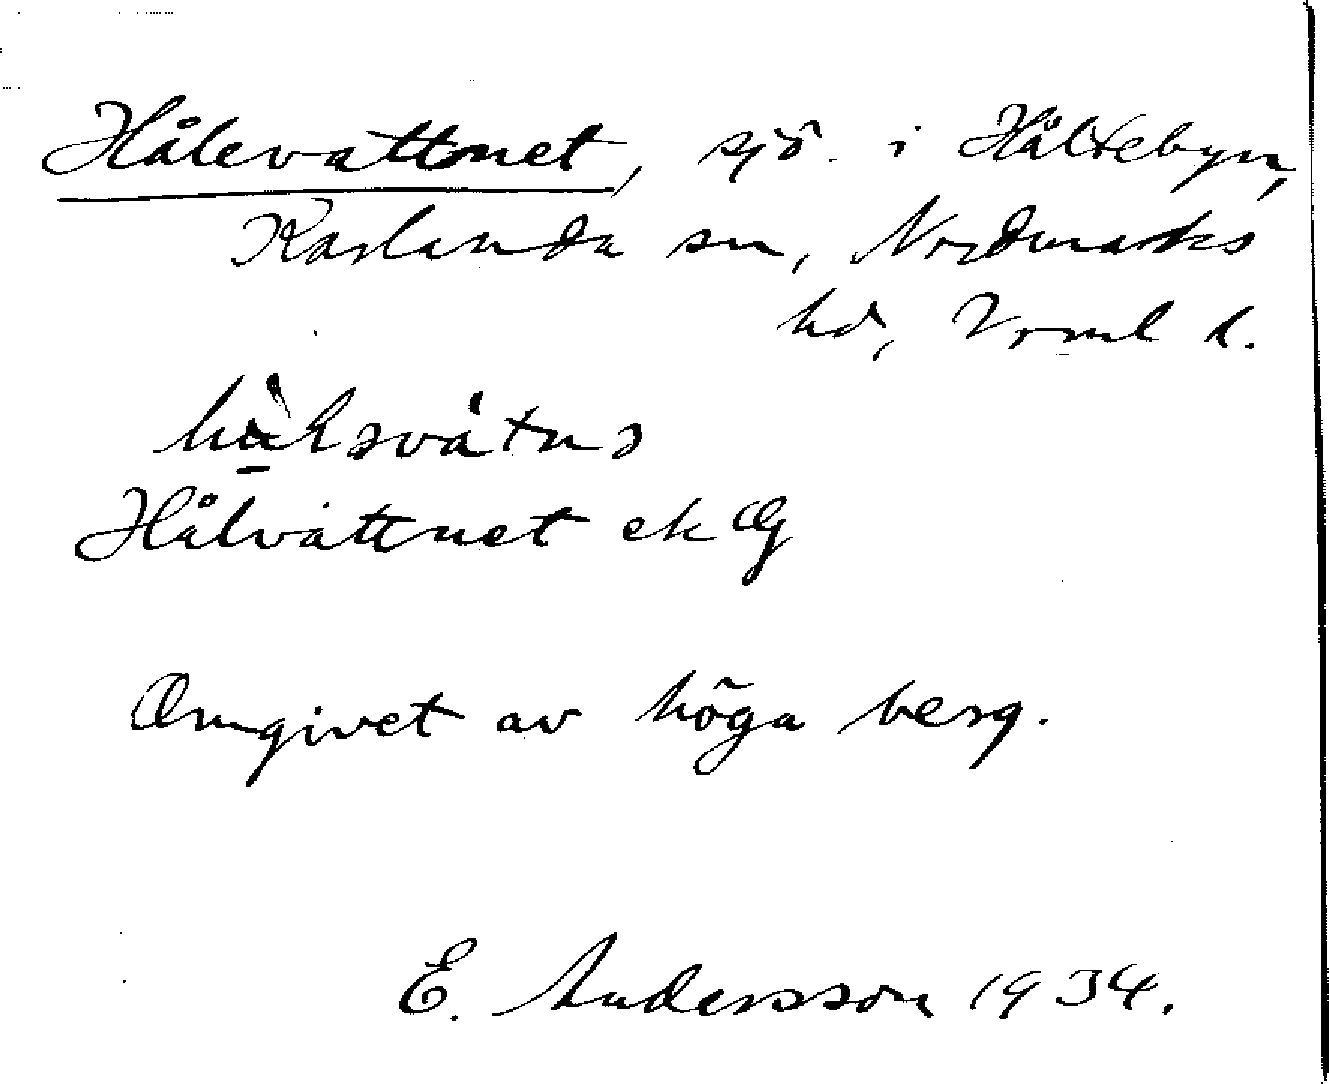 Hålevattnet, sjö i Håltebyn,
Karlanda sn, Nordmarks
hd, Vrml l.
Hålvattnet ek
Omgivet av höga berg.
E. Andersson 1934.